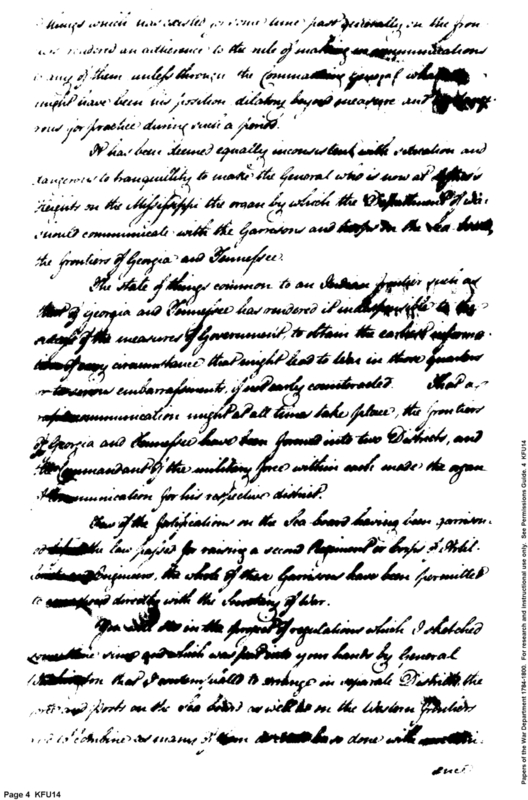 things which has existed for some time past generally on the fron
rendered an adherence to the rule of making no communications
to any of them unless through the commanding general
might have been his position dilatory beyond measure and
rous for practice during such a period.
It has been deemed equally inconsistent with situation and
dangerous to tranquillity to make the General who is now at
Heights on the Mississippi the organ by which the Department of
should communicate with the Garrisons and troops on the Sea board,
the frontiers of Georgia and Tennessee.
The state of things common to an Indian frontier such as
that of Georgia and Tennessee has rendered it indispensible to the
success of the measures of Government, to obtain the earliest informa-
tion of every circumstance that might lead to War in those quarters
or to serious embarrassments, if not early counteracted. That a
communication might at all times take place, the frontiers
of Georgia and Tennessee have been formed into two Districts, and
the Commandant of the military force within each made the organ
of communication for his respective district.
of the fortifications on the Sea board having been garrison-
ed the law passed for raising a second Regiment or Corps of Artil-
Engineers, the whole of these Garrisons have been permitted
to directly with the Secretary of War.
You will see in the project of regulations which I sketched
some time since and which was put into your hands by General
Washington that I to arrange in separate Districts, the
and posts on the Sea board as well as on the Western frontiers
and to combine as many of them done with
ence
Page 4 KFU14
Papers of the War Department 1784-1800. For research and instructional use only. See Permissions Guide. 4 KFU14